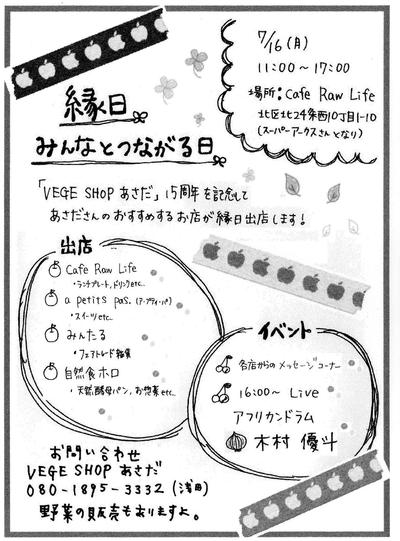 縁日
みんなとつながる日
7/16(月)
11:00～17:00
場所:Cafe Raw Life
北区北24条西10丁目1-10
(スーパーアークスさんとなり)
「VEGE SHOP あさだ」15周年を記念して
あさださんのおすすめするお店が縁日出店します!
出店
Cafe Raw Life
・ランチプレート,ドリンクetc..
a petits pas.(ア・プティ・パ)
・スイーツetc..
みんたる
・フェアトレード雑貨
自然食ホロ
・天然酵母パン,お惣菜etc..
イベント
各店からのメッセージコーナー
16:00～ Live
アフリカンドラム
木村 優斗
お問い合わせ
VEGE SHOP あさだ
080-1895-3332(浅田)
野菜の販売もありますよ。